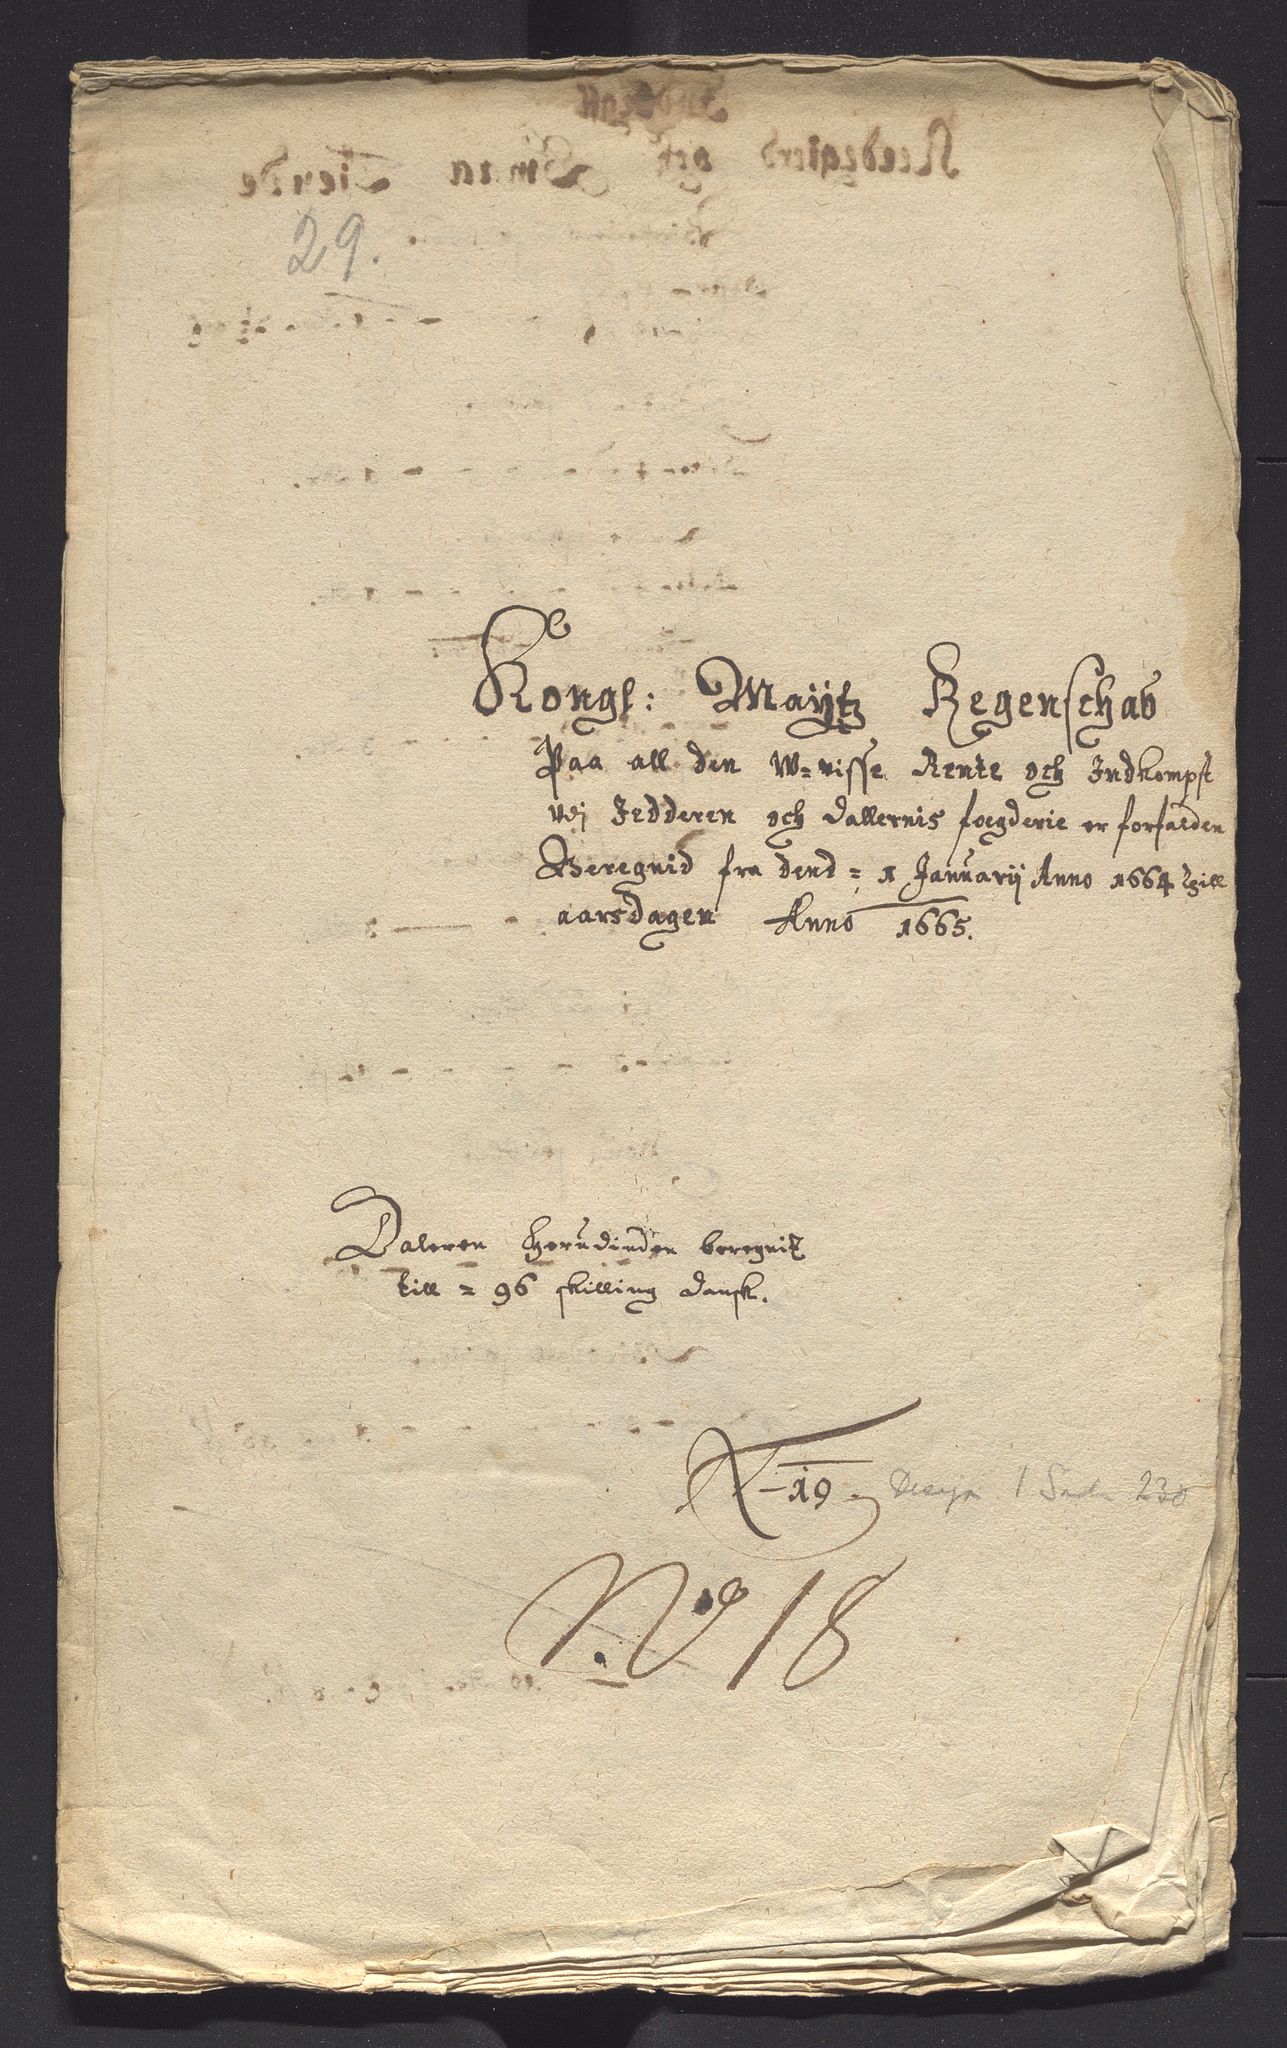 29.
Kongl: Maÿtz Regenschab
Paa all den W=visse Rente och Indkompst
udj Jedderen och Dallernis foegderie er forfalden
Beregnid fra dend = 1 Januarij Anno 1664 thill
aarsdagen Anno 1665.
Daleren herudinden beregnit
till = 96 skilling dansk.
19.
1 238
No 18